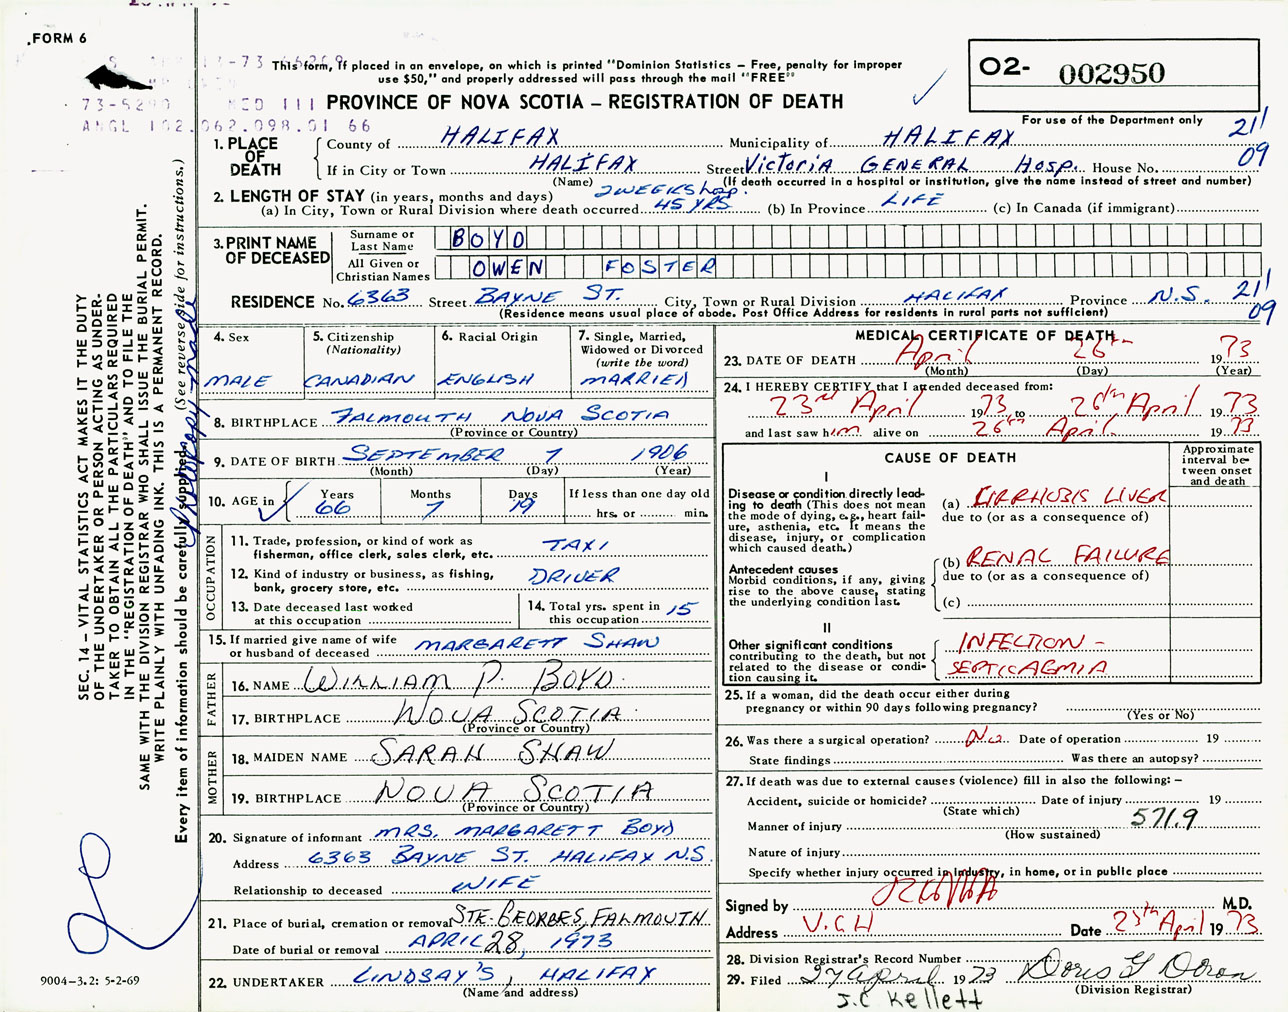 FORM 6
This form, If placed in an envelope, on which is printed "Dominion Statistics – Free, penalty for improper
use $50," and properly addressed will pass through the mail "FREE"
O2- 002950
For use of the Department only
73-5290 MED III
ANGL 102.062.098.01 66
PROVINCE OF NOVA SCOTIA – REGISTRATION OF DEATH
21'
09
1. PLACE OF DEATH
County of HALIFAX Municipality of HALIFAX
If in City or Town HALIFAX Street Victoria GENERAL Hosp. House No.
(Name) (If death occurred in a hospital or institution, give the name instead of street and number)
2. LENGTH OF STAY (in years, months and days) 2 WEEKS hosp.
(a) In City, Town or Rural Division where death occurred 45 YRS (b) In Province LIFE (c) In Canada (if immigrant)
3. PRINT NAME OF DECEASED
Surname or Last Name BOYD
All Given or Christian Names OWEN FOSTER
RESIDENCE No. 6363 Street BAYNE ST. City, Town or Rural Division HALIFAX Province N.S. 21'
09
(Residence means usual place of abode. Post Office Address for residents in rural parts not sufficient)
4. Sex
MALE
5. Citizenship
(Nationality)
CANADIAN
6. Racial Origin
ENGLISH
7. Single, Married,
Widowed or Divorced
(write the word)
MARRIED
8. BIRTHPLACE FALMOUTH NOVA SCOTIA
(Province or Country)
9. DATE OF BIRTH SEPTEMBER 7 1906
(Month) (Day) (Year)
10. AGE in Years 66 Months 7 Days 19 If less than one day old
hrs. or min.
OCCUPATION
11. Trade, profession, or kind of work as
fisherman, office clerk, sales clerk, etc. TAXI
12. Kind of industry or business, as fishing,
bank, grocery store, etc. DRIVER
13. Date deceased last worked
at this occupation
14. Total yrs. spent in
this occupation 15
15. If married give name of wife
or husband of deceased MARGARETT SHAW
FATHER
16. NAME WILLIAM P. BOYD.
17. BIRTHPLACE NOVA SCOTIA.
(Province or Country)
MOTHER
18. MAIDEN NAME SARAH SHAW
19. BIRTHPLACE NOVA SCOTIA
(Province or Country)
20. Signature of informant MRS. MARGARETT BOYD
Address 6363 BAYNE ST. HALIFAX N.S.
Relationship to deceased WIFE
21. Place of burial, cremation or removal STE. GEORGES, FALMOUTH
Date of burial or removal APRIL 28, 1973
22. UNDERTAKER LINDSAY'S, HALIFAX
(Name and address)
MEDICAL CERTIFICATE OF DEATH
23. DATE OF DEATH April 26th 1973
(Month) (Day) (Year)
24. I HEREBY CERTIFY that I attended deceased from:
23rd April 1973 to 26th April 1973
and last saw him alive on 26th April. 1973
CAUSE OF DEATH
Approximate
interval be-
tween onset
and death
I
Disease or condition directly lead-
ing to death (This does not mean
the mode of dying, e.g., heart fail-
ure, asthenia, etc. It means the
disease, injury, or complication
which caused death.)
(a) CIRRHOSIS LIVER
due to (or as a consequence of)
Antecedent causes
Morbid conditions, if any, giving
rise to the above cause, stating
the underlying condition last.
(b) RENAL FAILURE
due to (or as a consequence of)
(c)
II
Other significant conditions
contributing to the death, but not
related to the disease or condi-
tion causing it.
INFECTION -
SEPTICAEMIA
25. If a woman, did the death occur either during
pregnancy or within 90 days following pregnancy?
(Yes or No)
26. Was there a surgical operation? No Date of operation 19
State findings Was there an autopsy?
27. If death was due to external causes (violence) fill in also the following: –
Accident, suicide or homicide? Date of injury 19
(State which)
Manner of injury 571.9
(How sustained)
Nature of injury
Specify whether injury occurred in Industry, in home, or in public place
Signed by M.D.
Address V.G.H Date 25th April 1973.
28. Division Registrar's Record Number
29. Filed 27 April 1973
(Division Registrar)
J.C Kellett
SEC. 14 – VITAL STATISTICS ACT MAKES IT THE DUTY
OF THE UNDERTAKER OR PERSON ACTING AS UNDER-
TAKER TO OBTAIN ALL THE PARTICULARS REQUIRED
IN THE "REGISTRATION OF DEATH" AND TO FILE THE
SAME WITH THE DIVISION REGISTRAR WHO SHALL ISSUE THE BURIAL PERMIT.
WRITE PLAINLY WITH UNFADING INK. THIS IS A PERMANENT RECORD.
Every item of information should be carefully supplied. (See reverse side for instructions.)
Photocopy made
9004–3.2: 5-2-69